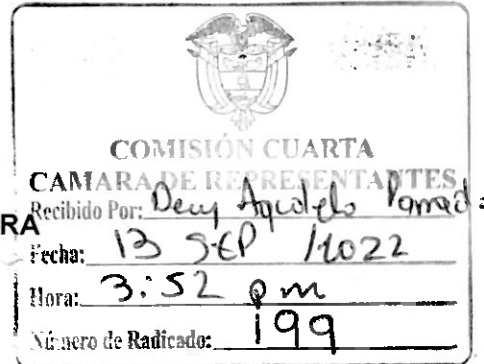 COMISIÓN CUARTA
CAMARA DE REPRESENTANTES
RA
Recibido Por: Decy Agudelo
Fecha: 13 SEP /2022
Hora: 3:52 pm
Número de Radicado: 199